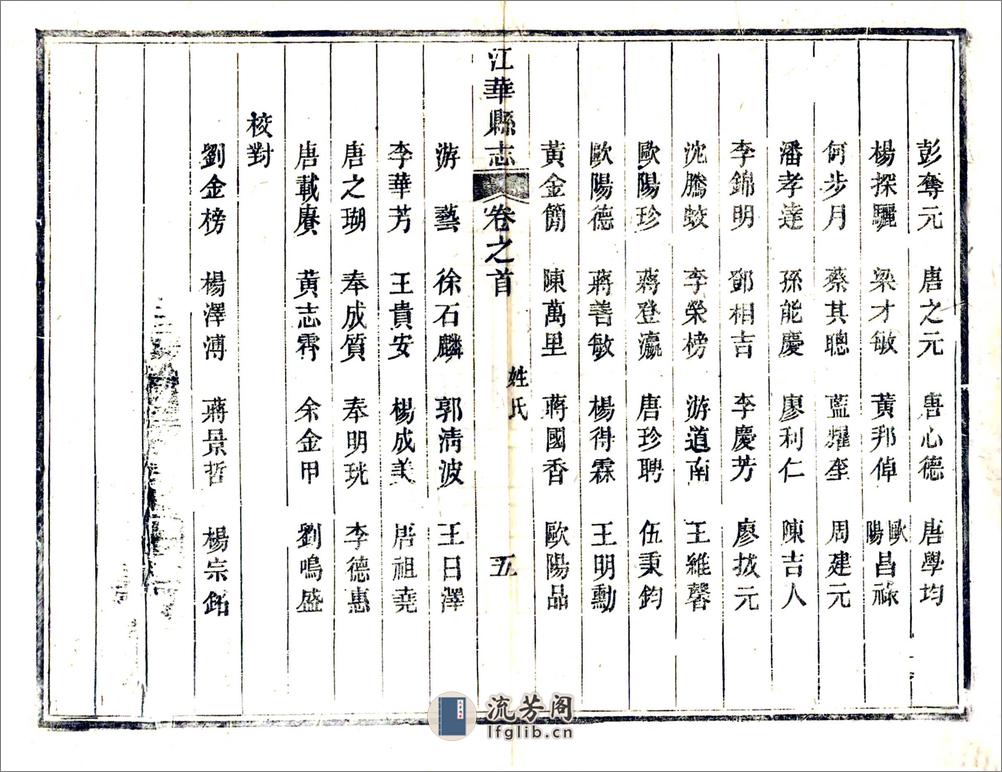 彭奪元 唐之元 唐心德 唐學均
楊探驪 梁才敏 黃邦倬 歐陽昌祿
何步月 蔡其聰 藍耀奎 周建元
潘孝達 孫能慶 廖利仁 陳吉人
李錦明 鄧相吉 李慶芳 廖拔元
沈騰蛟 李榮榜 游道南 王維馨
歐陽珍 蔣登瀛 唐珍聘 伍秉鈞
歐陽德 蔣善敏 楊得霖 王明勳
黃金簡 陳萬里 蔣國香 歐陽品
江華縣志 卷之首 姓氏 五
游藝 徐石麟 郭清波 王日澤
李華芳 王貴安 楊成美 唐祖堯
唐之瑚 奉成質 奉明珖 李德惠
唐載賡 黃志霽 余金甲 劉鳴盛
校對
劉金榜 楊澤溥 蔣景哲 楊宗銘
流芳阁
lfglib.cn